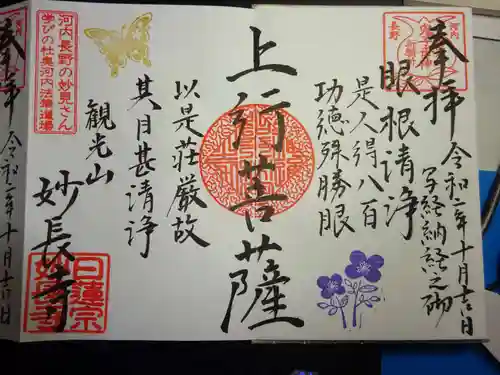 奉拝
令和二年十月吉日
写経納経之砌
眼根清浄
是人得八百
功徳殊勝眼
上行菩薩
以是荘厳故
其目甚清浄
観光山
妙長寺
河内長野の妙見さん
学びの杜奥河内法華道場
日蓮宗
妙長寺
河内
長野
奉拝
令和二年十月吉日